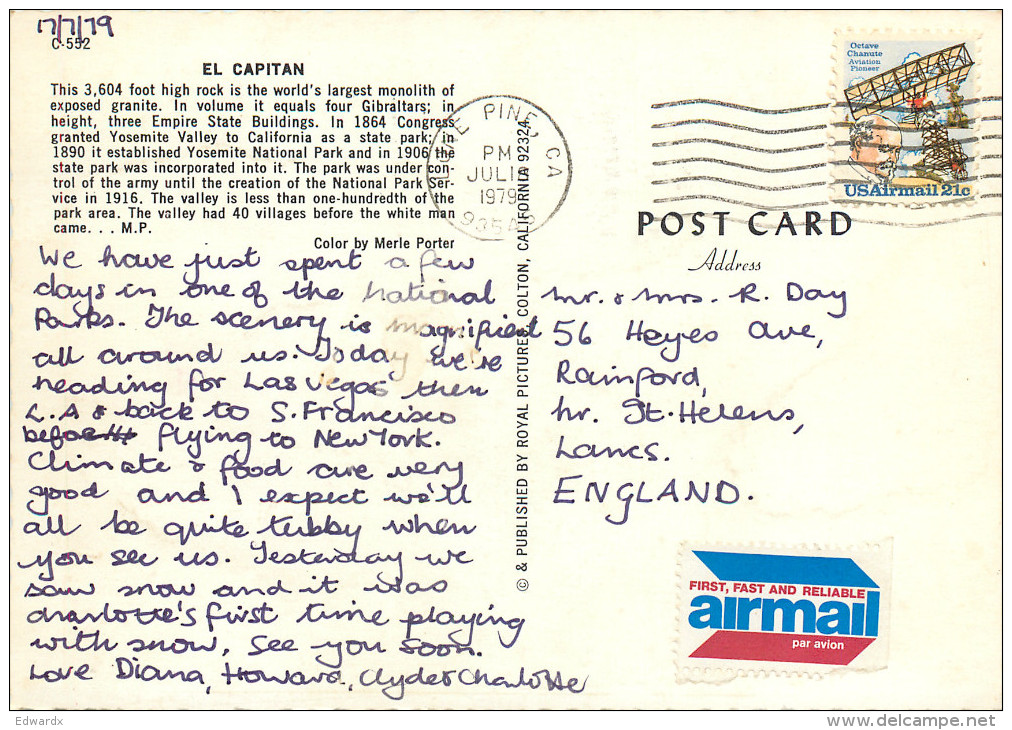 17/7/79
C-552
EL CAPITAN
This 3,604 foot high rock is the world's largest monolith of
exposed granite. In volume it equals four Gibraltars; in
height, three Empire State Buildings. In 1864 Congress
granted Yosemite Valley to California as a state park; in
1890 it established Yosemite National Park and in 1906 the
state park was incorporated into it. The park was under con-
trol of the army until the creation of the National Park Ser-
vice in 1916. The valley is less than one-hundredth of the
park area. The valley had 40 villages before the white man
came. . . M.P.
Color by Merle Porter
We have just spent a few
days in one of the National
Parks. The scenery is magnificent
all around us. Today we're
heading for Las Vegas then
L.A & back to S. Francisco
before flying to New York.
Climate & food are very
good and I expect we'll
all be quite tubby when
you see us. Yesterday we
saw snow and it was
Charlotte's first time playing
with snow. See you soon.
Love Diana, Howard, Clyde & Charlotte
© & PUBLISHED BY ROYAL PICTURES, COLTON, CALIFORNIA 92324
PINE, CA
PM
JUL
1979
Octave
Chanute
Aviation
Pioneer
USAirmail 21c
POST CARD
Address
Mr. & Mrs. R. Day
56 Heyes Ave,
Rainford,
Nr. St. Helens,
Lancs.
ENGLAND.
FIRST, FAST AND RELIABLE
airmail
par avion
Edwardx
delcampe.net